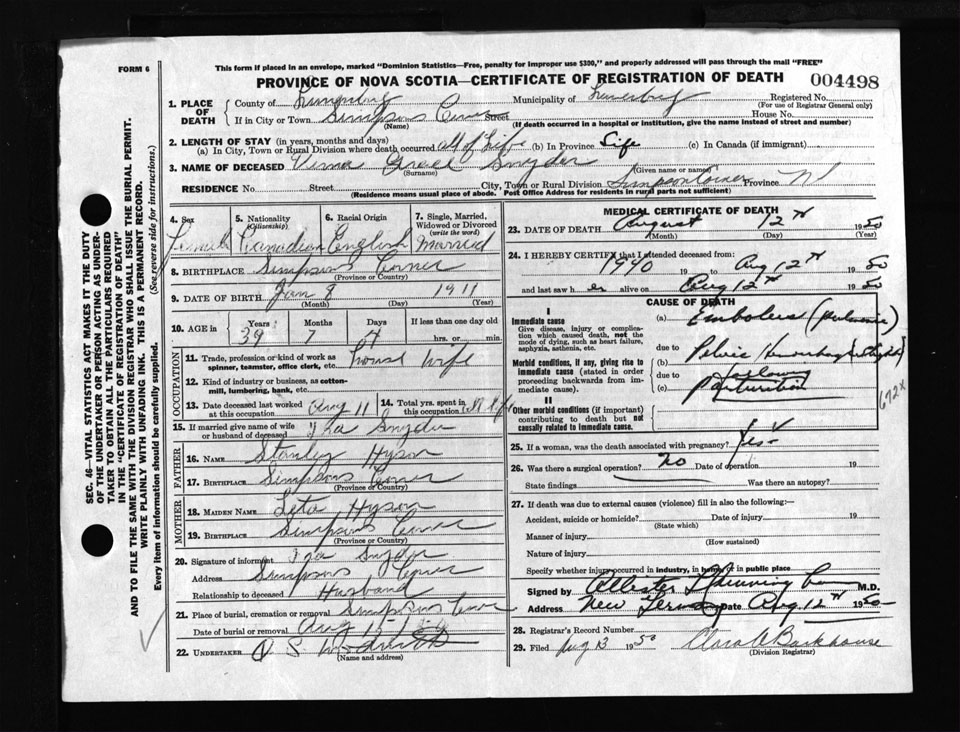 FORM 6
This form if placed in an envelope, marked "Dominion Statistics—Free, penalty for improper use $300," and properly addressed will pass through the mail "FREE"
PROVINCE OF NOVA SCOTIA—CERTIFICATE OF REGISTRATION OF DEATH
004498
1. PLACE OF DEATH
County of Lunenburg Municipality of Lunenburg Registered No.
(For use of Registrar General only)
If in City or Town Simpsons Corner Street House No.
(Name) (If death occurred in a hospital or institution, give the name instead of street and number)
2. LENGTH OF STAY (in years, months and days)
(a) In City, Town or Rural Division where death occurred All of Life (b) In Province Life (c) In Canada (if immigrant)
3. NAME OF DECEASED Grace Snyder
(Surname) (Given name or names)
RESIDENCE No. Street City, Town or Rural Division Simpson Corner Province NS
(Residence means usual place of abode. Post Office Address for residents in rural parts not sufficient)
SEC. 46—VITAL STATISTICS ACT MAKES IT THE DUTY
OF THE UNDERTAKER OR PERSON ACTING AS UNDERTAKER
TO OBTAIN ALL THE PARTICULARS REQUIRED
IN THE "CERTIFICATE OF REGISTRATION OF DEATH"
AND TO FILE THE SAME WITH THE DIVISION REGISTRAR WHO SHALL ISSUE THE BURIAL PERMIT.
WRITE PLAINLY WITH UNFADING INK. THIS IS A PERMANENT RECORD.
Every item of information should be carefully supplied. (See reverse side for instructions.)
4. Sex 5. Nationality (Citizenship) 6. Racial Origin 7. Single, Married, Widowed or Divorced (write the word)
Female Canadian English Married
8. BIRTHPLACE Simpsons Corner
(Province or Country)
9. DATE OF BIRTH Jan 8 1911
(Month) (Day) (Year)
10. AGE in Years Months Days If less than one day
39 7 4 hrs. or min.
OCCUPATION
11. Trade, profession or kind of work as spinner, teamster, office clerk, etc. House Wife
12. Kind of industry or business, as cotton-mill, lumbering, bank, etc.
13. Date deceased last worked at this occupation Aug 11 14. Total yrs. spent in this occupation
15. If married give name of wife or husband of deceased Ira Snyder
FATHER
16. Name Stanley Hyson
17. Birthplace Simpsons Corner
(Province or Country)
MOTHER
18. Maiden Name Leta Hyson
19. Birthplace Simpsons Corner
(Province or Country)
20. Signature of informant Ira Snyder
Address Simpsons Corner
Relationship to deceased Husband
21. Place of burial, cremation or removal Simpsons Corner
Date of burial or removal Aug
22. Undertaker
(Name and address)
MEDICAL CERTIFICATE OF DEATH
23. DATE OF DEATH August 12th 1950
(Month) (Day) (Year)
24. I HEREBY CERTIFY that I attended deceased from:
1940 19 to Aug 12th 1950
and last saw her alive on Aug 12th 1950
CAUSE OF DEATH
I
Immediate cause (a) Embolus (pulmonic)
Give disease, injury or complication which caused death, not the mode of dying, such as heart failure, asphyxia, asthenia, etc.
due to Pelvic
Morbid conditions, if any, giving rise to immediate cause (stated in order proceeding backwards from immediate cause).
(b)
due to following
(c) Parturition
672x
II
Other morbid conditions (if important) contributing to death but not causally related to immediate cause.
25. If a woman, was the death associated with pregnancy? Yes
26. Was there a surgical operation? no Date of operation 19
State findings Was there an autopsy?
27. If death was due to external causes (violence) fill in also the following:—
Accident, suicide or homicide? Date of injury 19
(State which)
Manner of injury
(How sustained)
Nature of injury
Specify whether injury occurred in industry, in home, or in public place
Signed by M.D.
Address New Germany Date Aug 12th 1950
28. Registrar's Record Number
29. Filed Aug 13 1950 Clara A Barkhouse
(Division Registrar)